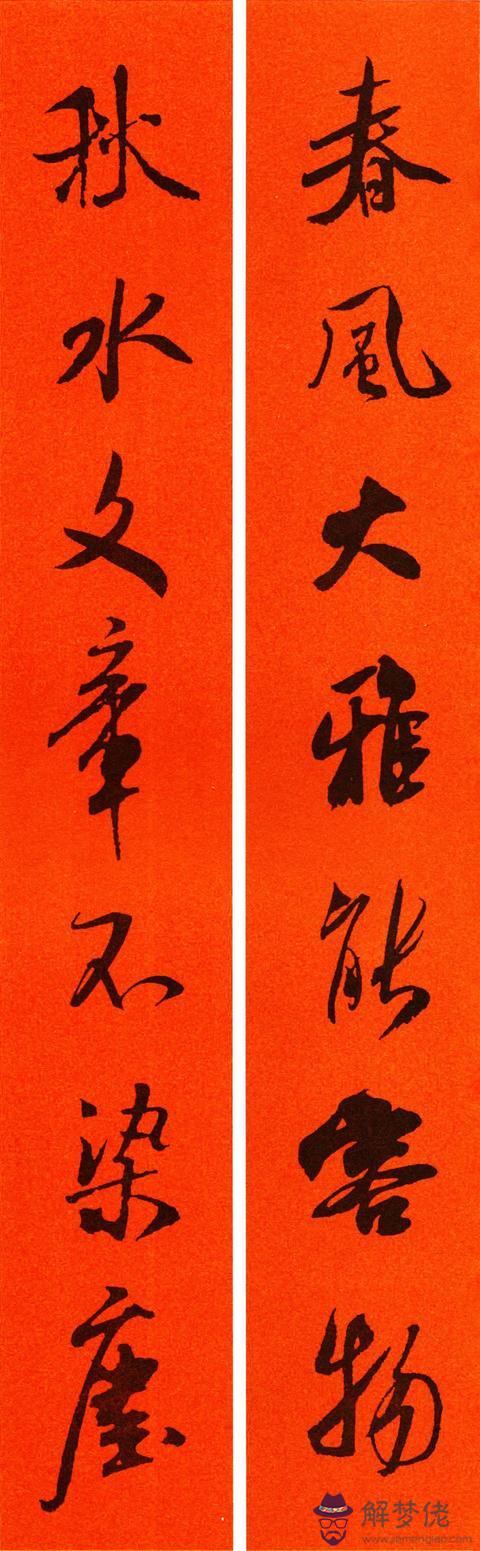 春風大雅能容物
秋水文章不染塵
解梦佬
www.jiemenglao.com